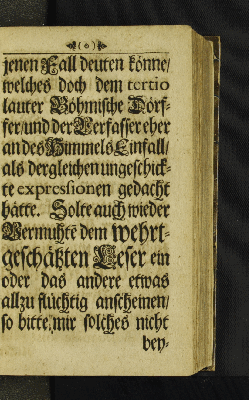 ( o )
jenen Fall deuten könne/
welches doch dem tertio
lauter Böhmische Dörf-
fer/und der Verfasser eher
an des Himmels Einfall/
als dergleichen ungeschick-
te expressionen gedacht
hätte. Solte auch wieder
Vermuhtē dem wehrt-
geschäßten Leser ein
oder das andere etwas
allzu flüchtig anscheinen/
so bitte, mir solches nicht
bey-